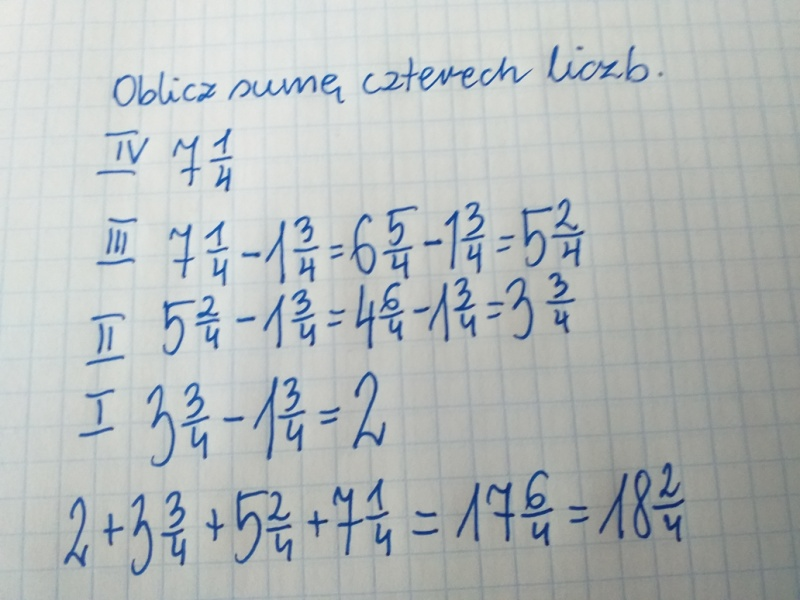 Oblicz sumę czterech liczb.
IV 7 1/4
III 7 1/4 - 1 3/4 = 6 5/4 - 1 3/4 = 5 2/4
II 5 2/4 - 1 3/4 = 4 6/4 - 1 3/4 = 3 3/4
I 3 3/4 - 1 3/4 = 2
2 + 3 3/4 + 5 2/4 + 7 1/4 = 17 6/4 = 18 2/4